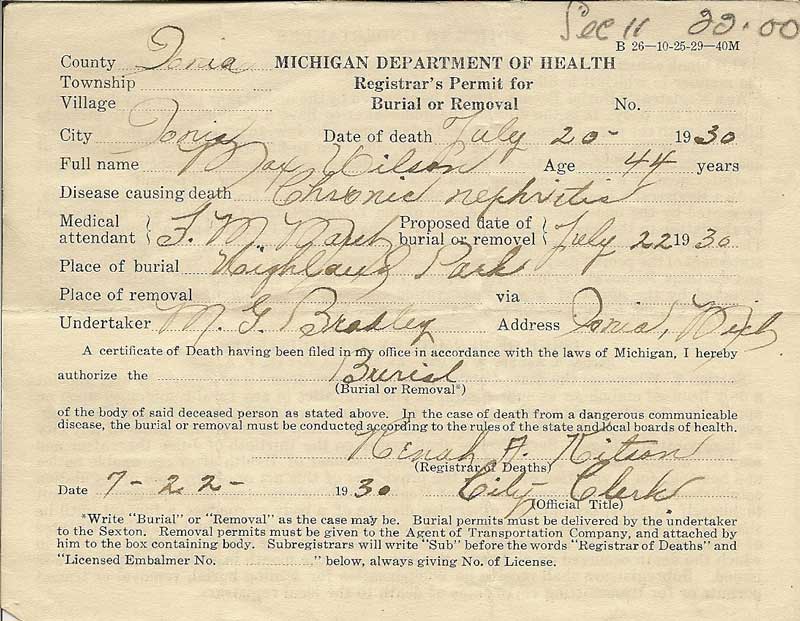 Sec 11 22.00
B 26—10-25-29—40M
County Ionia MICHIGAN DEPARTMENT OF HEALTH
Township Registrar's Permit for
Village Burial or Removal No.
City Ionia Date of death July 20- 1930
Full name Max Wilson Age 44 years
Disease causing death Chronic nephritis
Medical attendant F. M. Marsh Proposed date of burial or removel July 22 1930
Place of burial Highland Park
Place of removal via
Undertaker M. G. Bradley Address Ionia, Mich
A certificate of Death having been filed in my office in accordance with the laws of Michigan, I hereby
authorize the Burial
(Burial or Removal*)
of the body of said deceased person as stated above. In the case of death from a dangerous communicable
disease, the burial or removal must be conducted according to the rules of the state and local boards of health.
A. Kitson
(Registrar of Deaths)
Date 7-22- 1930 City Clerk
(Official Title)
*Write "Burial" or "Removal" as the case may be. Burial permits must be delivered by the undertaker
to the Sexton. Removal permits must be given to the Agent of Transportation Company, and attached by
him to the box containing body. Subregistrars will write "Sub" before the words "Registrar of Deaths" and
"Licensed Embalmer No. ........................" below, always giving No. of License.